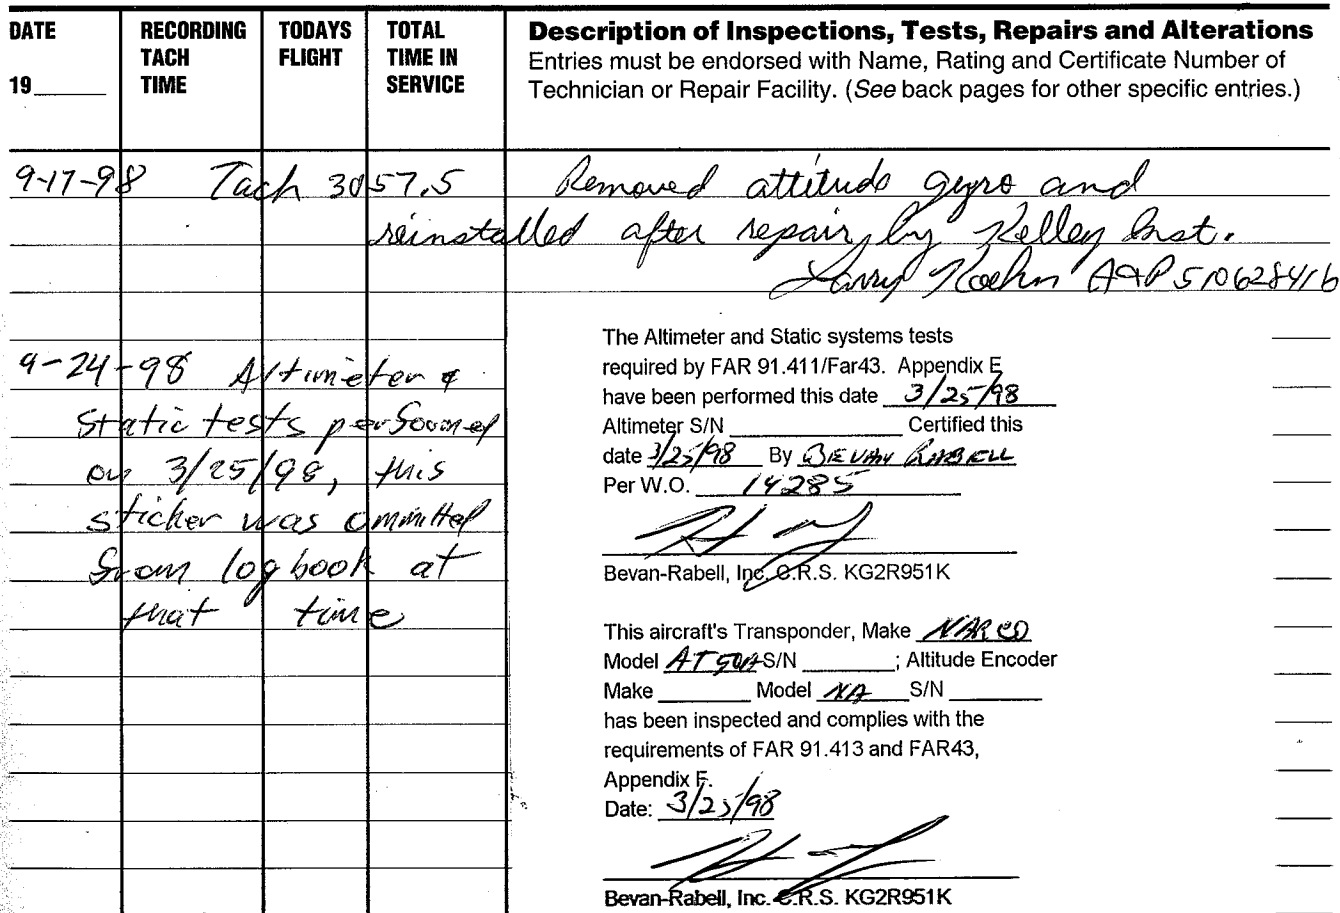 DATE RECORDING TODAYS TOTAL Description of Inspections, Tests, Repairs and Alterations
TACH FLIGHT TIME IN Entries must be endorsed with Name, Rating and Certificate Number of
19____ TIME SERVICE Technician or Repair Facility. (See back pages for other specific entries.)
9-17-98 Tach 3057.5 Removed attitude gyro and
reinstalled after repair by Kelley Inst.
Larry Koehn A&P 510628416
9-24-98 Altimeter &
static tests performed
on 3/25/98, this
sticker was ommitted
from logbook at
that time
The Altimeter and Static systems tests
required by FAR 91.411/Far43. Appendix E
have been performed this date 3/25/98
Altimeter S/N ________ Certified this
date 3/25/98 By BEVAN RABELL
Per W.O. 14285
Bevan-Rabell, Inc. C.R.S. KG2R951K
This aircraft's Transponder, Make NARCO
Model AT50A S/N ________; Altitude Encoder
Make ________ Model NA S/N ________
has been inspected and complies with the
requirements of FAR 91.413 and FAR43,
Appendix F.
Date: 3/25/98
Bevan-Rabell, Inc. C.R.S. KG2R951K